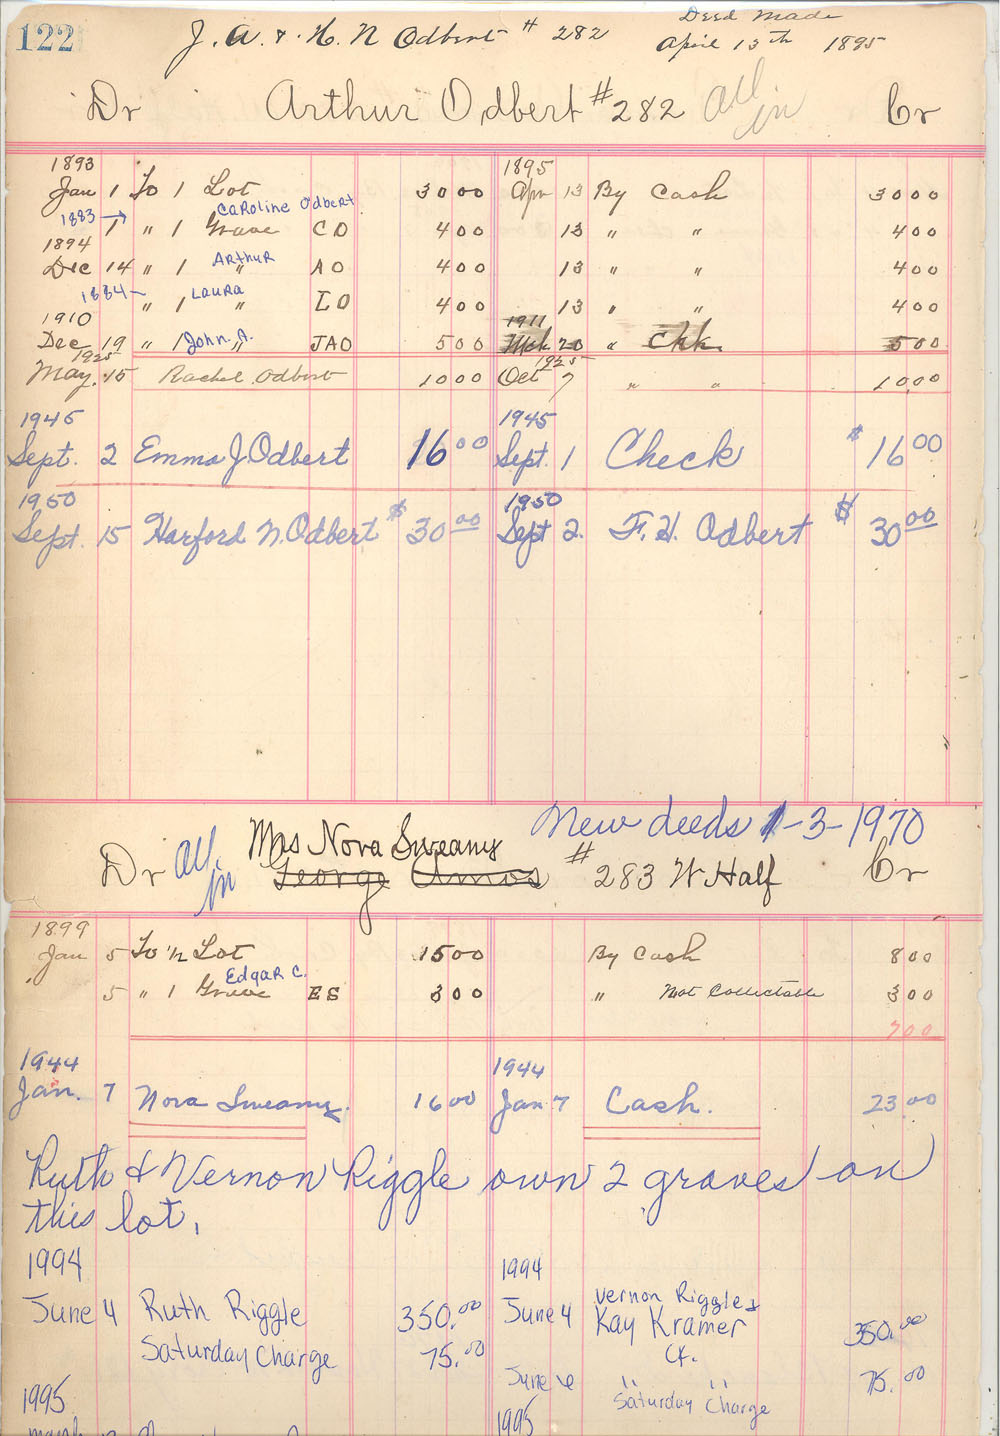 122
J. A. & H. N Odbert # 282
Deed Made
April 13th 1895
Dr Arthur Odbert #282 All in Cr
1893 1895
Jan 1 To 1 Lot 30 00 Apr 13 By Cash 30 00
1883 → Caroline Odbert
1 " 1 Grave CO 4 00 13 " " 4 00
1894
Dec 14 " 1 Arthur " AO 4 00 13 " " 4 00
1884 - " 1 Laura " LO 4 00 13 " " 4 00
1910 1911
Dec 19 " 1 John. A. " JAO 5 00 Mch 20 " Chk. 5 00
1925 1925
May. 15 Rachel Odbert 10 00 Oct 7 " " 10 00
1945 1945
Sept. 2 Emma J. Odbert 16 00 Sept. 1 Check $ 16 00
1950 1950
Sept. 15 Harford N. Odbert $ 30 00 Sept 2. F. H. Odbert $ 30 00
New deeds 1-3-1970
Mrs Nova Sweany
Dr All in George Amos # 283 W Half Cr
1899
Jan 5 To ½ Lot 15 00 By Cash 8 00
Edgar C.
5 " 1 Grave ES 3 00 " Not Collectable 3 00
7 00
1944 1944
Jan. 7 Nova Sweany. 16 00 Jan 7 Cash. 23 00
Ruth & Vernon Riggle own 2 graves on
this lot.
1994 1994
June 4 Ruth Riggle 350.00 June 4 Vernon Riggle &
Kay Kramer 350.00
Saturday Charge 75.00 CK.
June 6 " " 75.00
Saturday Charge
1995 1995